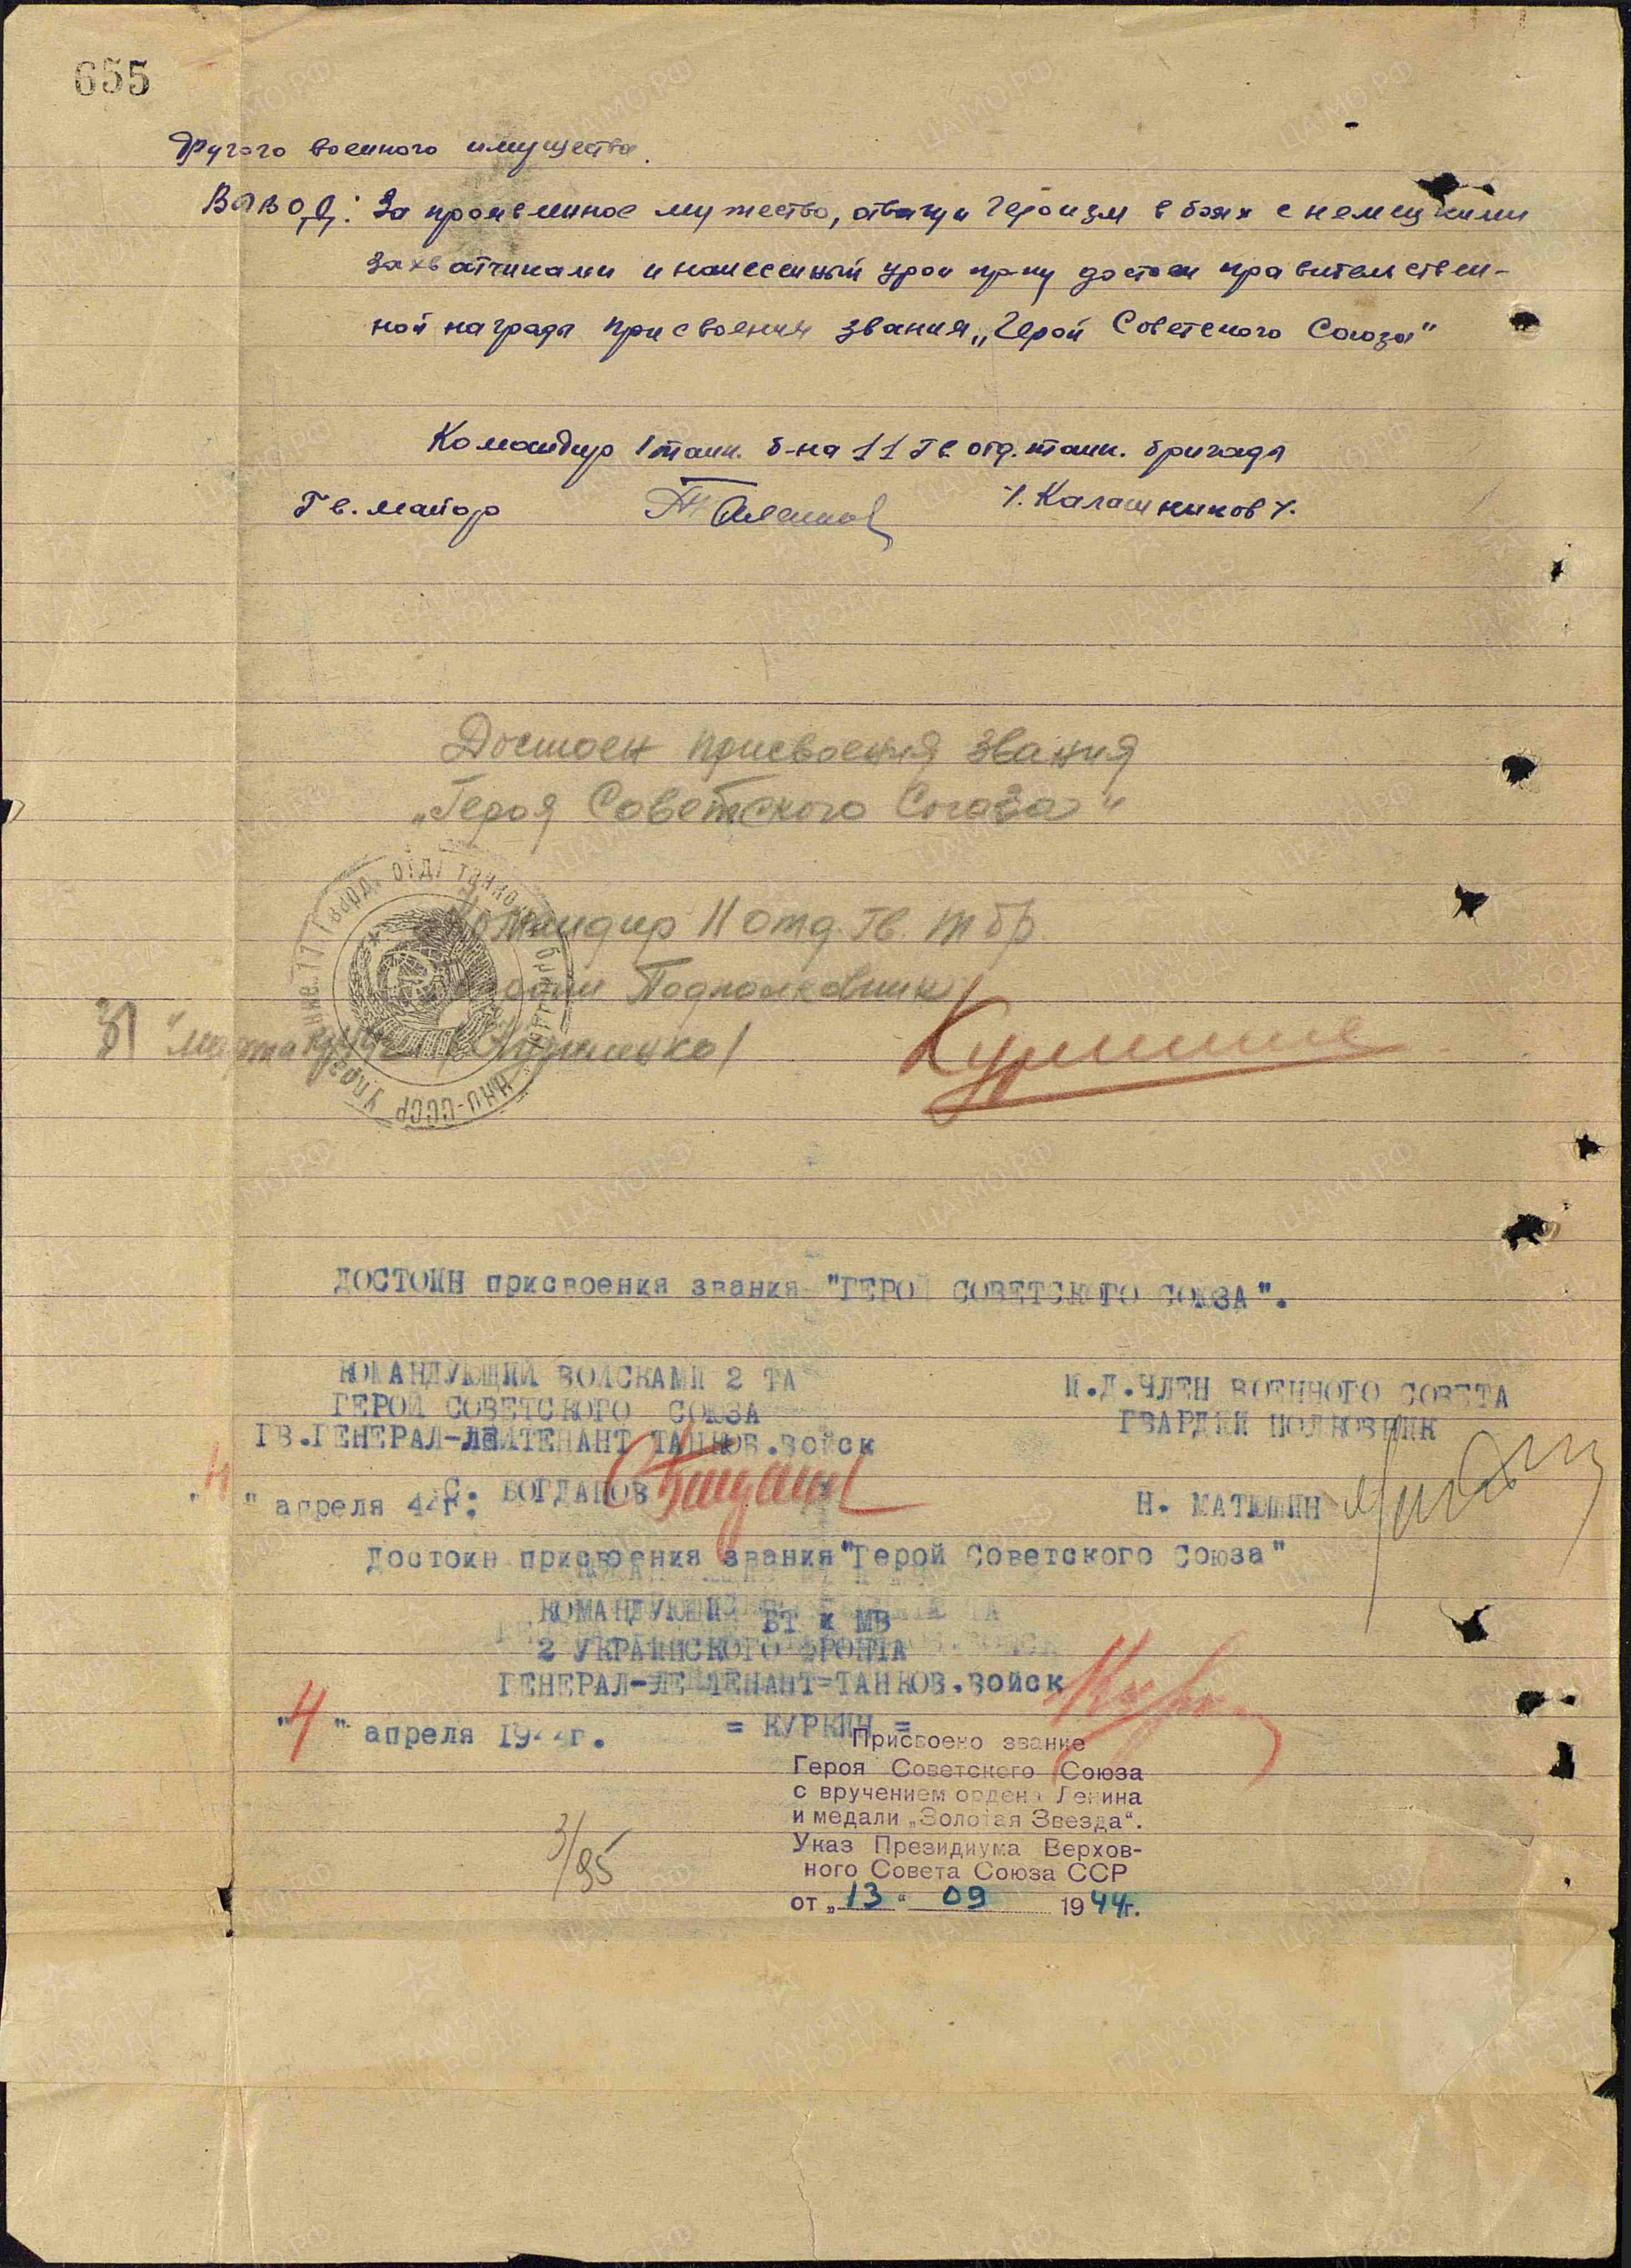 655
другого военного имущества.
Вывод: За проявленное мужество, отвагу и героизм в боях с немецкими
захватчиками и нанесенный урон пр-ку достоин правительствен-
ной награды присвоения звания „Герой Советского Союза"
Командир 1 танк. б-на 11 Гв. отд. танк. бригады
Гв. майор /. Калашников /.
Достоен присвоения звания
„Героя Советского Союза"
Командир 11 отд. Гв. тбр.
Гвардии Подполковник
31 "марта
ДОСТОИН присвоения звания "ГЕРОЙ СОВЕТСКОГО СОЮЗА".
КОМАНДУЮЩИЙ ВОЙСКАМИ 2 ТА
ГЕРОЙ СОВЕТСКОГО СОЮЗА
ГВ.ГЕНЕРАЛ-ЛЕЙТЕНАНТ ТАНКОВ.ВОЙСК
С. БОГДАНОВ
" апреля 44г.
И.Д.ЧЛЕН ВОЕННОГО СОВЕТА
ГВАРДИИ ПОЛКОВНИК
Н. МАТЮШИН
Достоин присвоения звания "Герой Советского Союза"
КОМАНДУЮЩИЙ БТ и МВ
2 УКРАИНСКОГО ФРОНТА
ГЕНЕРАЛ-ЛЕЙТЕНАНТ ТАНКОВ.ВОЙСК
"4" апреля 1944г. = КУРКИН =
Присвоено звание
Героя Советского Союза
с вручением ордена Ленина
и медали „Золотая Звезда".
Указ Президиума Верхов-
ного Совета Союза ССР
от „13" 09 1944г.
3/95